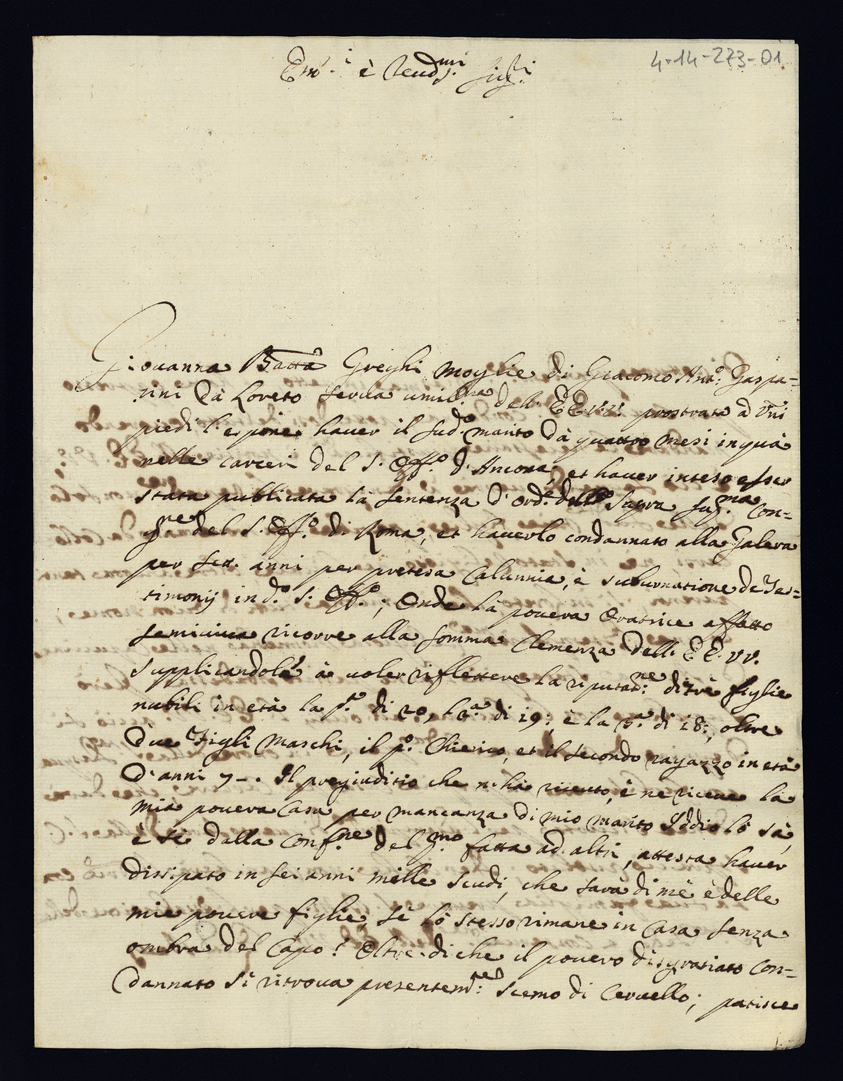 4-14-273-01
Em.i è Reud.mi Sig.ri
Giouanna Batta Greghi moglie di Giacomo Ant.o Gaspa-
rini da Loreto serua umil.ma dell' EE. VV. prostrata a' Vri
piedi l'espone hauer il sud.o marito da quattro mesi in quà
nelle carceri del S. Off.o d'Ancona, et hauer inteso esser
stata publicata la sentenza d'ord.e della Sagra Con-
g.ne del S. Off.o di Roma, et hauerlo condannato alla Galera
per sett. anni per pretesa Calunnia, è subornatione de Tes-
timonij in d.o S. Off.o; Onde la pouera Oratrice affatto
semiuiua ricorre alla somma Clemenza dell. EE. VV.
supplicandole à uoler riflettere la riputat.ne di trè figlie
nubili in età la p.a di 20, la 2.a di 19; è la 3.a di 18; oltre
due Figli Maschi, il p.o Chierico, et il secondo ragazzo in età
d'anni 7-. Il pregiuditio che n'hà riceuto, è ne riceue la
mia pouera Casa per mancanza di mio marito Iddio lo sà,
è se dalla Conf.ne del fatta ad altri, attesta hauer
dissipato in sei anni mille scudi, che sarà di mè è delle
mie pouere figlie, sè lo stesso rimane in Casa senza
ombra del Capo? Oltre di che il pouero disgratiato Con-
dannato si ritroua presentem.te scemo di Ceruello; patisce